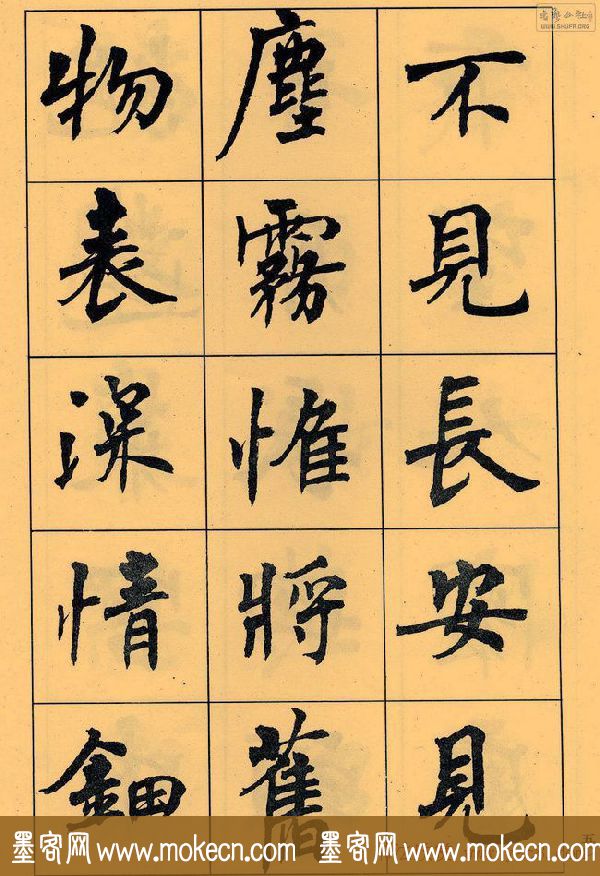 不見長安見
塵霧惟將舊
物表深情鈿
墨客网 www.mokecn.com 墨客网 www.mokecn.com 墨客网 www.mokecn.com